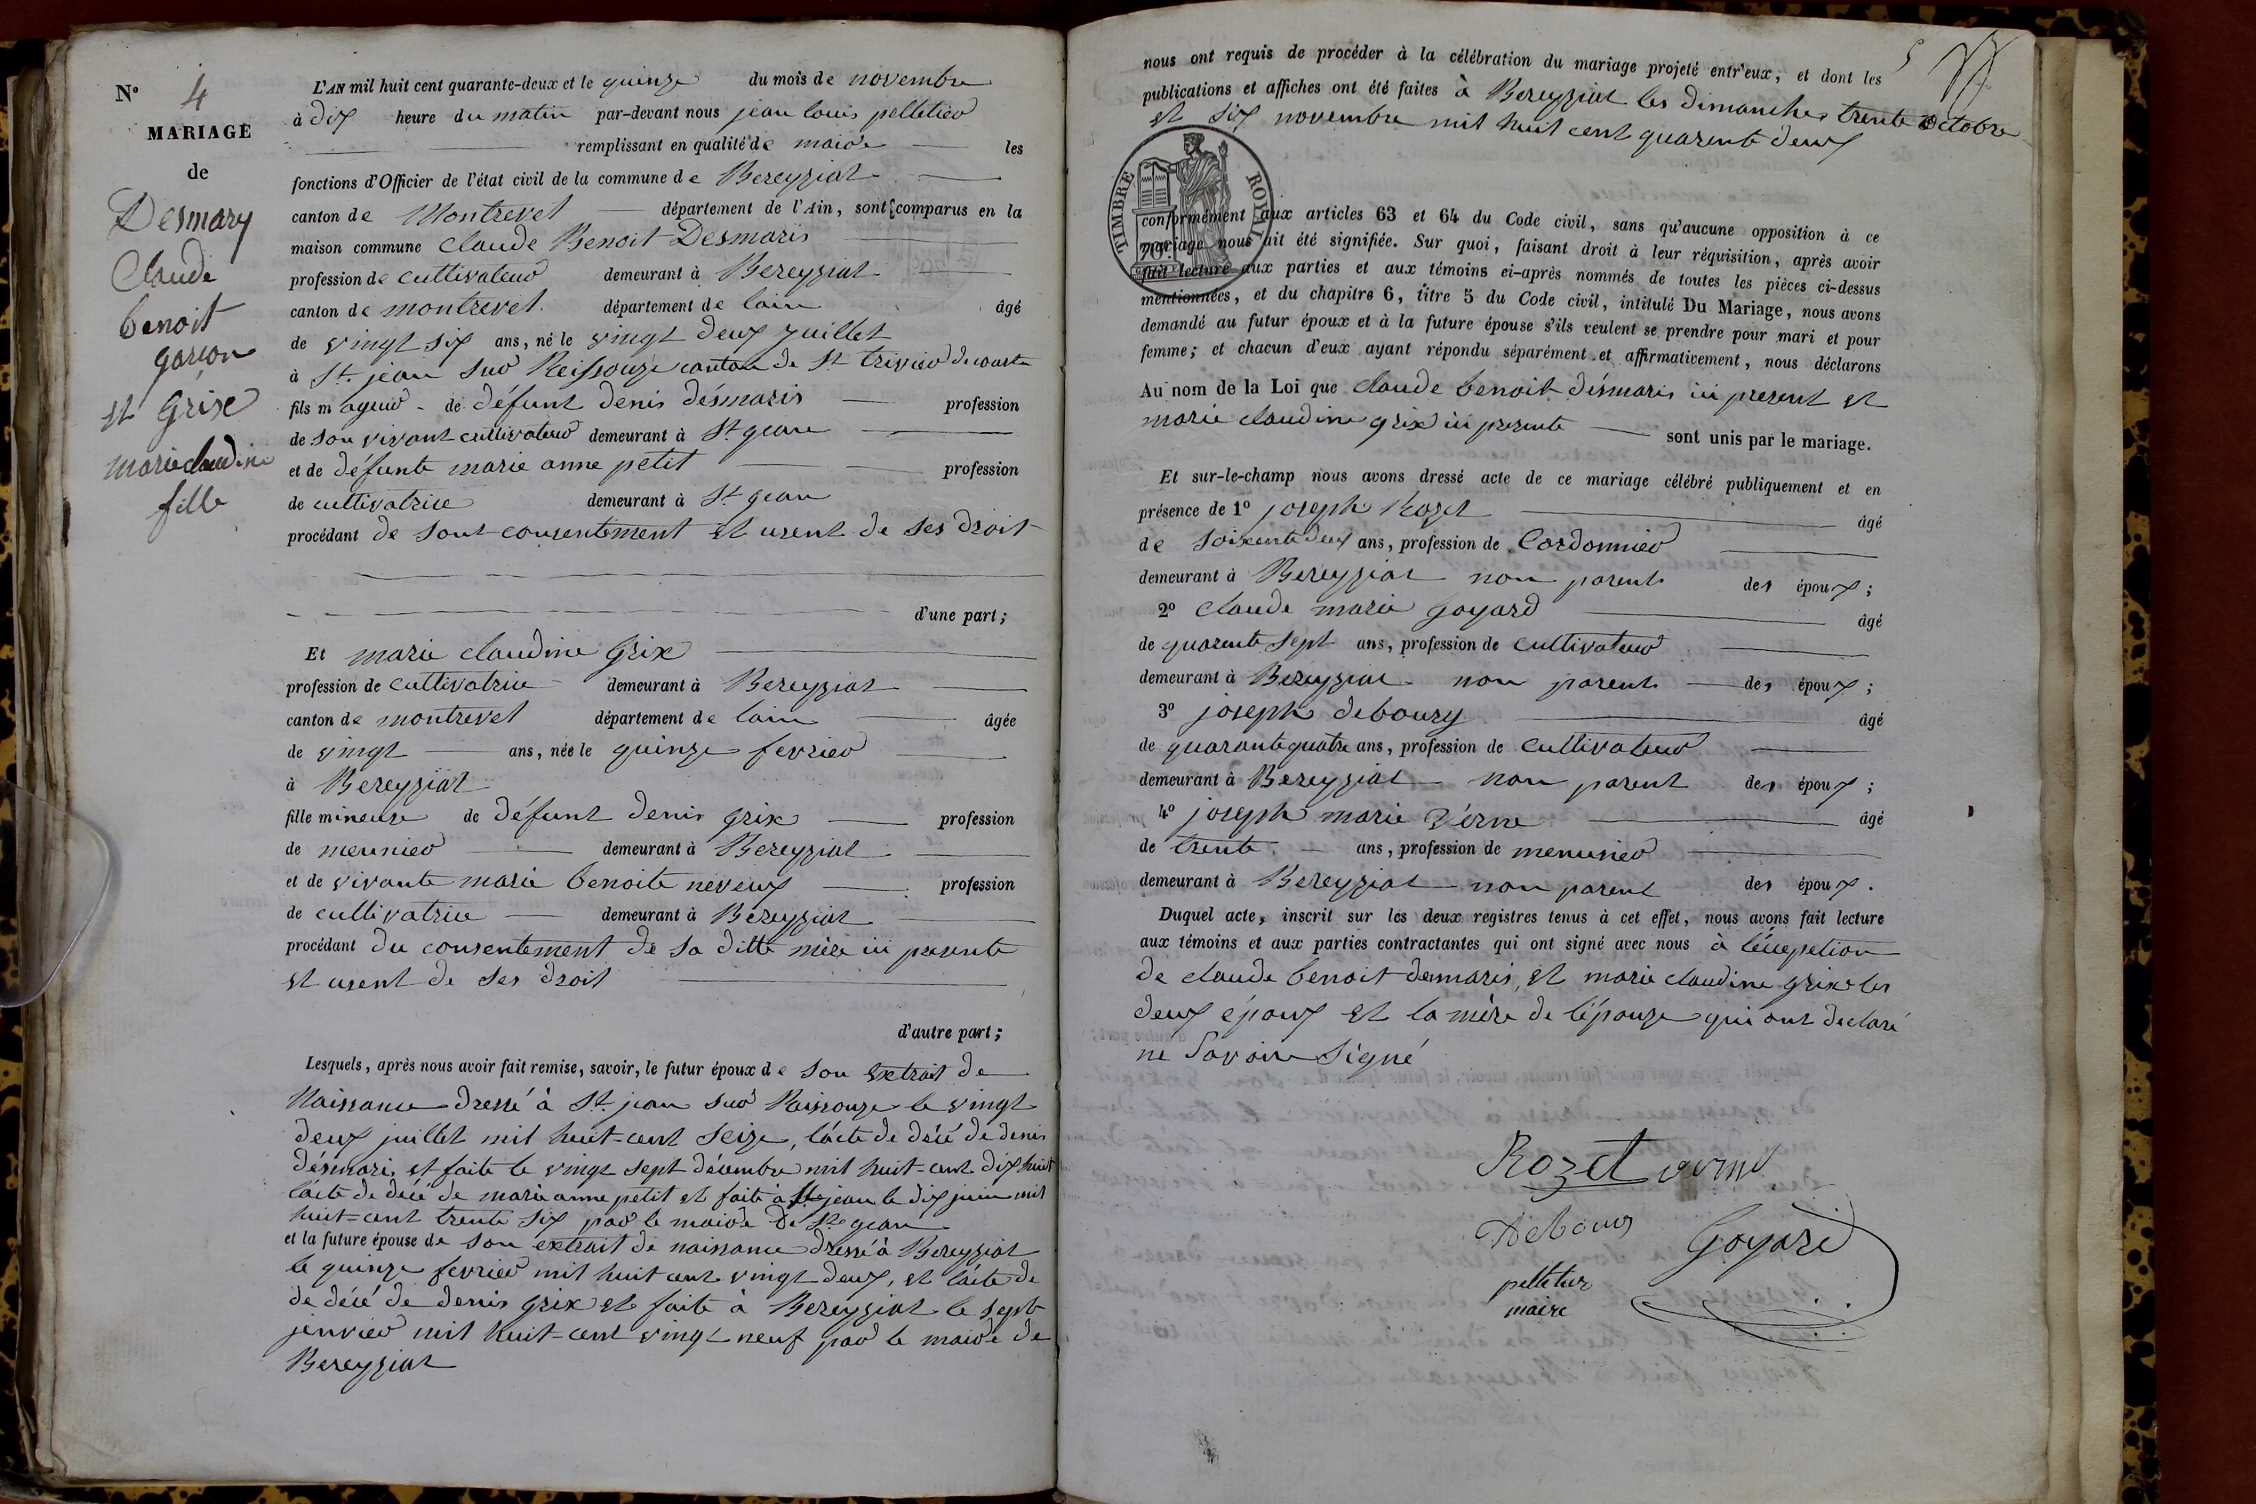 N° 4
MARIAGE
de
Desmary
Claude
benoit
garçon
et Grix
marie claudine
fille
L'AN mil huit cent quarante-deux et le quinze du mois de novembre
à dix heure du matin par-devant nous jean louis pelletier
remplissant en qualité de maire les
fonctions d'Officier de l'état civil de la commune de Bereyziat
canton de Montrevel département de l'Ain, sont comparus en la
maison commune Claude Benoit Desmaris
profession de cultivateur demeurant à Bereyziat
canton de montrevel département de lain âgé
de vingt six ans, né le vingt deux juillet
à St jean sur Reissouze canton de St trivier de courte
fils mageur de défunt denis désmaris profession
de son vivant cultivateur demeurant à St gean
et de défunte marie anne petit profession
de cultivatrice demeurant à St gean
procédant de sont consentement et usent de ses droit
d'une part;
Et marie claudine Grix
profession de cultivatrice demeurant à Bereyziat
canton de montrevel département de lain âgée
de vingt ans, née le quinze fevrier
à Bereyziat
fille mineure de défunt denis grix profession
de meunier demeurant à Bereyziat
et de vivante marie benoite neveux profession
de cultivatrice demeurant à Béreyziat
procédant du consentement de sa ditte mère ici presente
et usent de ses droit
d'autre part;
Lesquels, après nous avoir fait remise, savoir, le futur époux de son extrait de
Naissance dressé à St jean sur Raissouze le vingt
deux juillet mil huit-cent seize, l'acte de décé de denis
désmaris et faite le vingt sept décembre mil huit-cent dix huit
l'acte de décé de marie anne petit et faite à St jean le dix juin mil
huit-cent trente six par le maire de St gean
et la future épouse de son extrait de naissance dressé à Bereyziat
le quinze fevrier mil huit cent vingt deux, et l'acte de
de décé de denis grix et faite à Bereyziat le sept
jenvier mil huit-cent vingt neuf par le maire de
Bereyziat
5
nous ont requis de procéder à la célébration du mariage projeté entr'eux, et dont les
publications et affiches ont été faites à Bereyziat les dimanches trente octobre
et six novembre mil huit cent quarente deux
TIMBRE ROYAL
70c
conformément aux articles 63 et 64 du Code civil, sans qu'aucune opposition à ce
mariage nous ait été signifiée. Sur quoi, faisant droit à leur réquisition, après avoir
fait lecture aux parties et aux témoins ci-après nommés de toutes les pièces ci-dessus
mentionnées, et du chapitre 6, titre 5 du Code civil, intitulé Du Mariage, nous avons
demandé au futur époux et à la future épouse s'ils veulent se prendre pour mari et pour
femme; et chacun d'eux ayant répondu séparément et affirmativement, nous déclarons
Au nom de la Loi que claude benoit désmaris ici present et
marie claudine grix ici presente sont unis par le mariage.
Et sur-le-champ nous avons dressé acte de ce mariage célébré publiquement et en
présence de 1° joseph Rozet âgé
de soixente deux ans, profession de Cordonnier
demeurant à Bereyziat non parent des époux;
2° claude marie goyard âgé
de quarente sept ans, profession de cultivateur
demeurant à Bereyziat non parent des époux;
3° joseph deboury âgé
de quarante quatre ans, profession de cultivateur
demeurant à Bereyziat non parent des époux;
4° joseph marie Vérne âgé
de trente ans, profession de menusier
demeurant à Bereyziat non parent des époux.
Duquel acte, inscrit sur les deux registres tenus à cet effet, nous avons fait lecture
aux témoins et aux parties contractantes qui ont signé avec nous à l'écepetion
de claude benoit desmaris, et marie claudine grix les
deux époux et la mère de l'épouze qui ont declaré
ne Savoir Signé
Rozet verne
Deboury Goyard
pelletier
maire